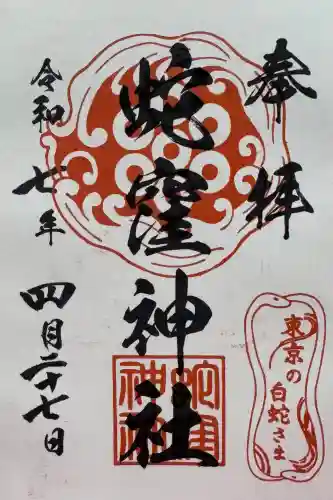 奉拝
東京の
白蛇さま
蛇窪神社
令和七年
四月二十七日